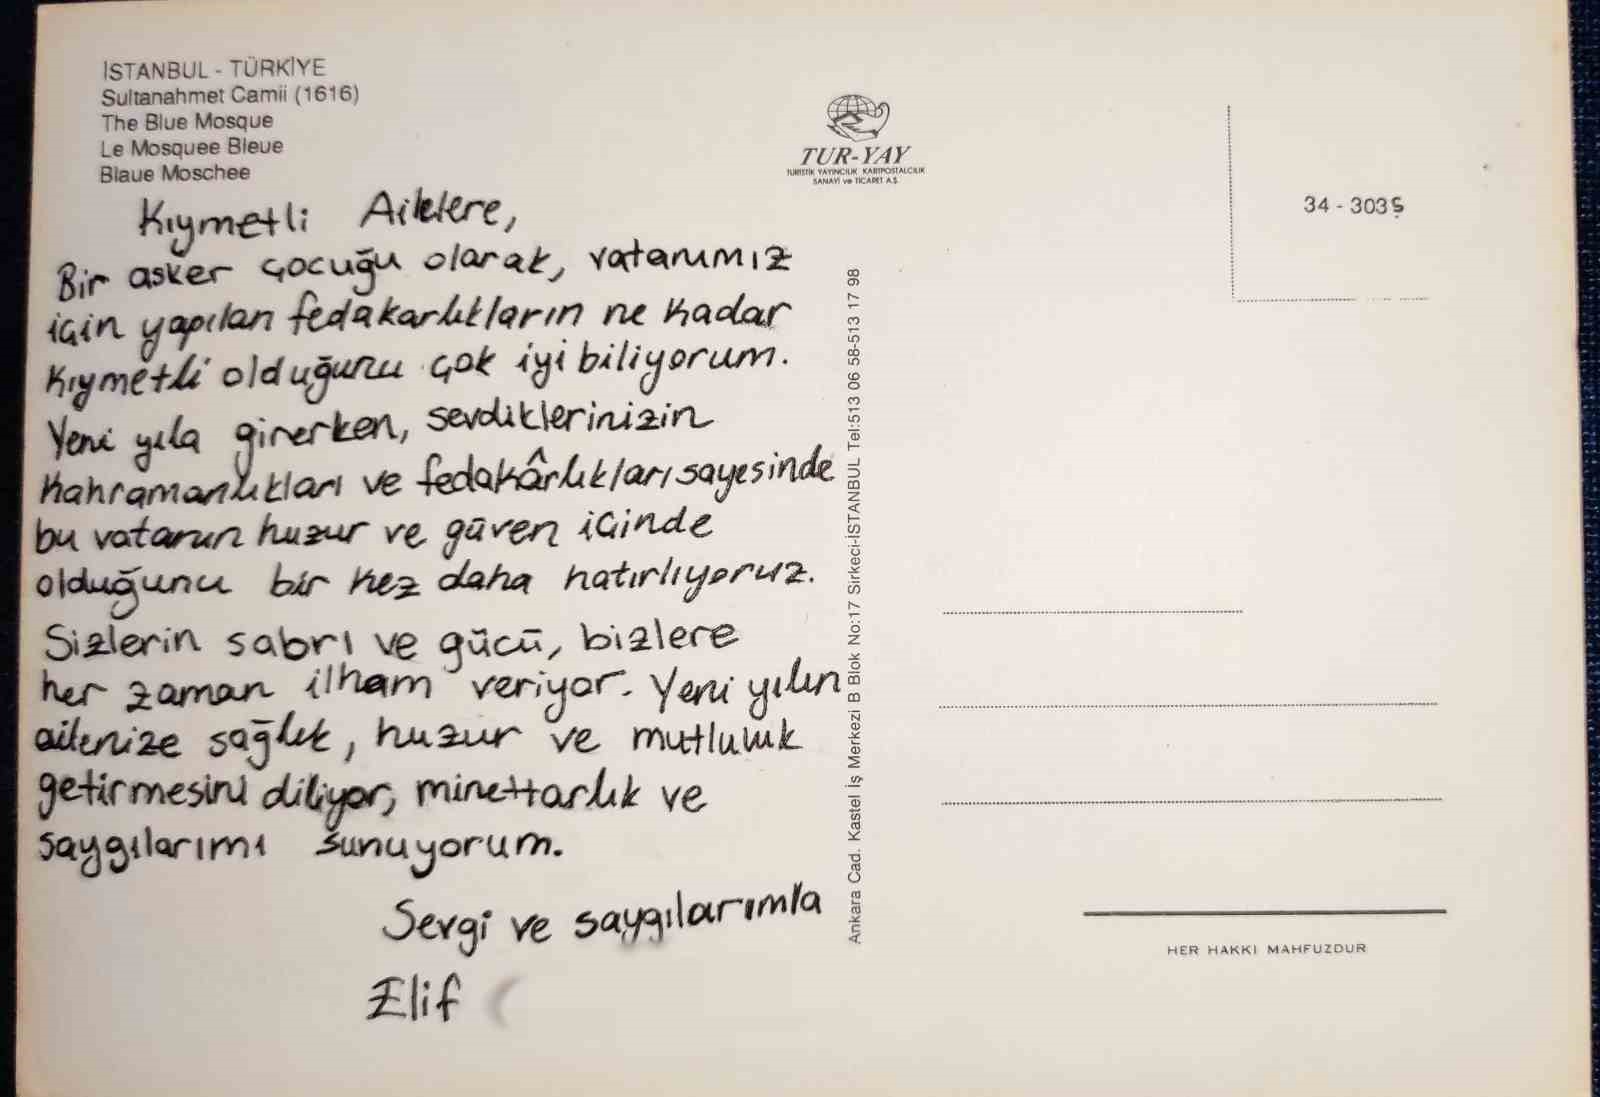 İSTANBUL - TÜRKİYE
Sultanahmet Camii (1616)
The Blue Mosque
Le Mosquee Bleue
Blaue Moschee
Kıymetli Ailelere,
Bir asker çocuğu olarak, vatanımız
için yapılan fedakarlıkların ne kadar
kıymetli olduğunu çok iyi biliyorum.
Yeni yıla girerken, sevdiklerinizin
kahramanlıkları ve fedakârlıkları sayesinde
bu vatanın huzur ve güven içinde
olduğunu bir kez daha hatırlıyoruz.
Sizlerin sabrı ve gücü, bizlere
her zaman ilham veriyor. Yeni yılın
ailenize sağlık, huzur ve mutluluk
getirmesini diliyor, minettarlık ve
saygılarımı sunuyorum.
Sevgi ve saygılarımla
Elif
TUR-YAY
TURİSTİK YAYINCILIK KARTPOSTALCILIK
SANAYİ ve TİCARET A.Ş.
Ankara Cad. Kastel İş Merkezi B Blok No:17 Sirkeci-İSTANBUL Tel:513 06 58-513 17 98
34 - 303Ş
HER HAKKI MAHFUZDUR